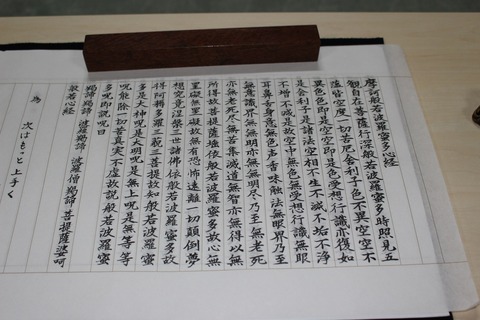 摩訶般若波羅蜜多心経
観自在菩薩行深般若波羅蜜多時照見五
蘊皆空度一切苦厄舎利子色不異空空不
異色色即是空空即是色受想行識亦復如
是舎利子是諸法空相不生不滅不垢不浄
不増不減是故空中無色無受想行識無眼
耳鼻舌身意無色声香味触法無眼界乃至
無意識界無無明亦無無明尽乃至無老死
亦無老死尽無苦集滅道無智亦無得以無
所得故菩提薩埵依般若波羅蜜多故心無
罣礙無罣礙故無有恐怖遠離一切顛倒夢
想究竟涅槃三世諸佛依般若波羅蜜多故
得阿耨多羅三藐三菩提故知般若波羅蜜
多是大神呪是大明呪是無上呪是無等等
呪能除一切苦真実不虚故説般若波羅蜜
多呪即説呪曰
羯諦羯諦 波羅羯諦 波羅僧羯諦 菩提薩婆訶
般若心経
為 次はもっと上手く